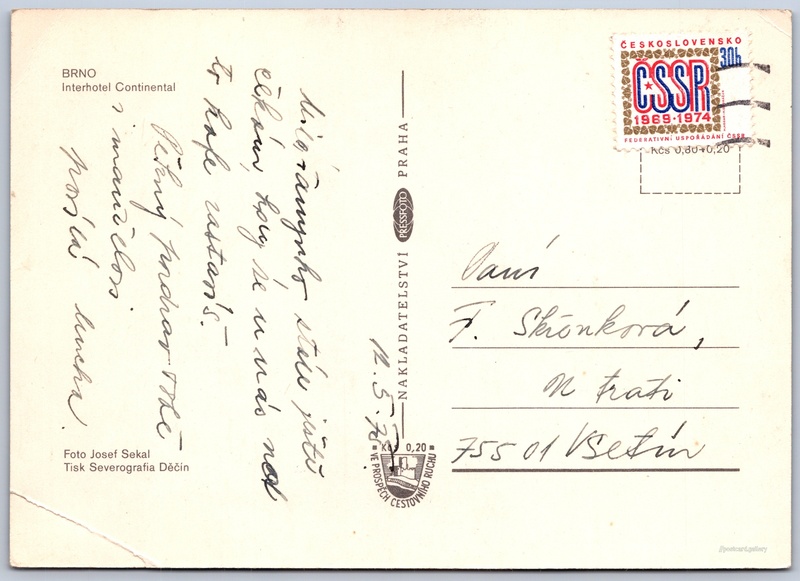 BRNO
Interhotel Continental
stále ještě
čekám, kdy se u nás na
to kafe zastavíš.
Pěkný pozdrav Tobě
i manželovi
posílá
Foto Josef Sekal
Tisk Severografia Děčín
12. 5. 76
NAKLADATELSTVÍ PRESSFOTO PRAHA
Kčs 0,20
VE PROSPĚCH CESTOVNÍHO RUCHU
ČESKOSLOVENSKO
30h
ČSSR
1969-1974
FEDERATIVNÍ USPOŘÁDÁNÍ ČSSR
Kčs 0,60+0,20
Paní
F. Skřonková,
N trati
755 01 Vsetín